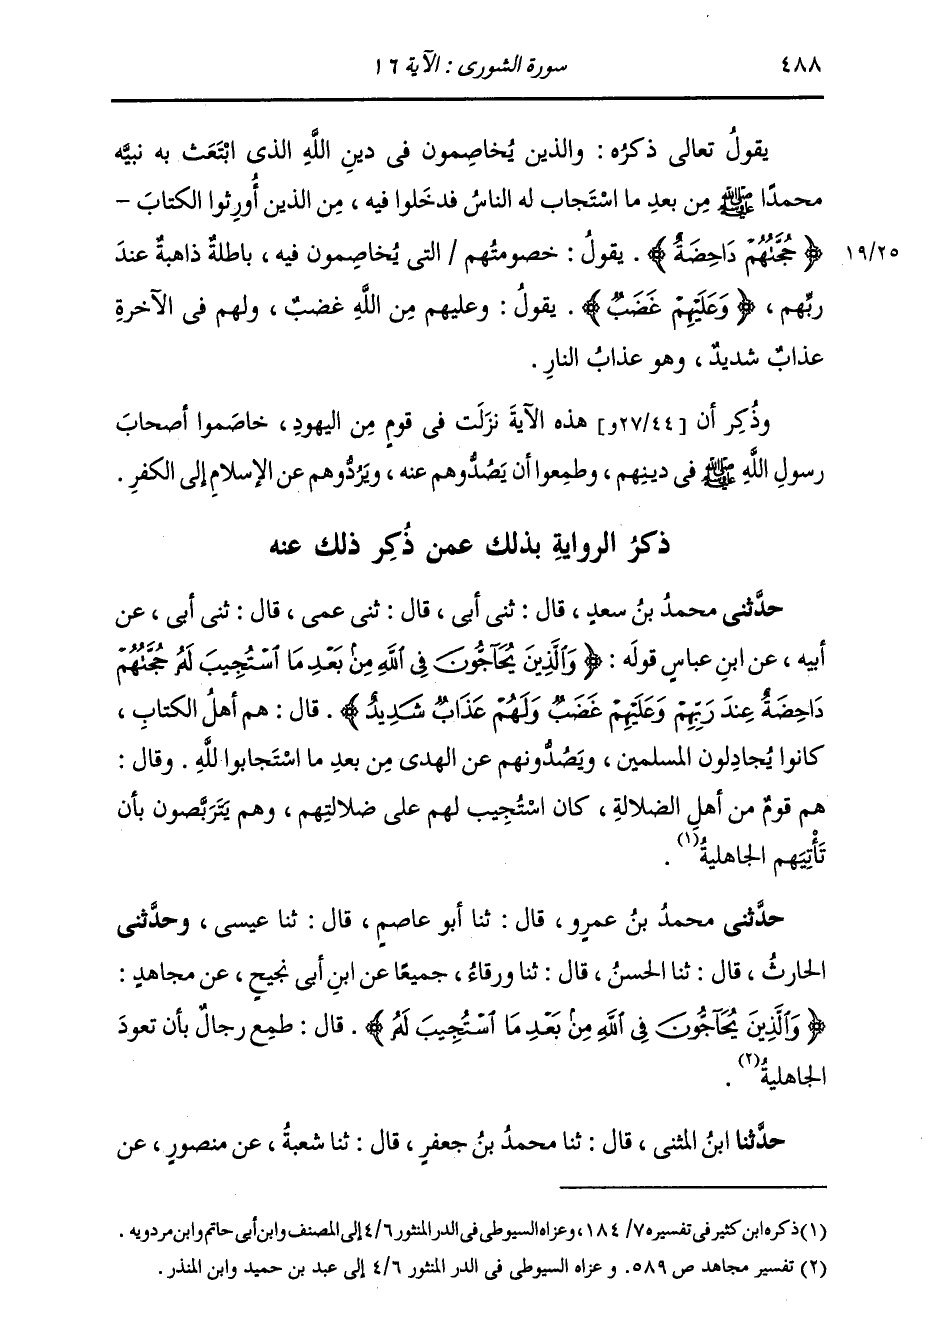 ٤٨٨ سورة الشورى : الآية ١٦
يقولُ تعالى ذكرُه : والذين يُخاصِمون فى دينِ اللَّهِ الذى ابْتَعَث به نبيَّه
محمدًا ﷺ مِن بعدِ ما اسْتَجاب له الناسُ فدخَلوا فيه ، مِن الذين أُورِثوا الكتابَ –
﴿ حُجَّتُهُمْ دَاحِضَةٌ ﴾ . يقولُ : خصومتُهم / التى يُخاصِمون فيه ، باطلةٌ ذاهبةٌ عندَ
١٩/٢٥
ربِّهم ، ﴿ وَعَلَيْهِمْ غَضَبٌ ﴾ . يقولُ : وعليهم مِن اللَّهِ غضبٌ ، ولهم فى الآخرةِ
عذابٌ شديدٌ ، وهو عذابُ النارِ .
وذُكِر أن [٢٧/٤٤و] هذه الآيةَ نزَلَت فى قومٍ مِن اليهودِ ، خاصَموا أصحابَ
رسولِ اللَّهِ ﷺ فى دينِهم ، وطمِعوا أن يَصُدُّوهم عنه ، ويَرُدُّوهم عن الإسلامِ إلى الكفرِ .
ذكرُ الروايةِ بذلك عمن ذُكِر ذلك عنه
حدَّثنى محمدُ بنُ سعدٍ ، قال : ثنى أبى ، قال : ثنى عمى ، قال : ثنى أبى ، عن
أبيه ، عن ابنِ عباسٍ قولَه : ﴿ وَٱلَّذِينَ يُحَآجُّونَ فِى ٱللَّهِ مِنۢ بَعْدِ مَا ٱسْتُجِيبَ لَهُۥ حُجَّتُهُمْ
دَاحِضَةٌ عِندَ رَبِّهِمْ وَعَلَيْهِمْ غَضَبٌ وَلَهُمْ عَذَابٌ شَدِيدٌ ﴾ . قال : هم أهلُ الكتابِ ،
كانوا يُجادِلون المسلمين ، ويَصُدُّونهم عن الهدى مِن بعدِ ما اسْتَجابوا للَّهِ . وقال :
هم قومٌ من أهلِ الضلالةِ ، كان اسْتُجِيب لهم على ضلالتِهم ، وهم يَتَرَبَّصون بأن
تَأْتِيَهم الجاهليةُ(١) .
حدَّثنى محمدُ بنُ عمرٍو ، قال : ثنا أبو عاصمٍ ، قال : ثنا عيسى ، وحدَّثنى
الحارثُ ، قال : ثنا الحسنُ ، قال : ثنا ورقاءُ ، جميعًا عن ابنِ أبى نجيحٍ ، عن مجاهدٍ :
﴿ وَٱلَّذِينَ يُحَآجُّونَ فِى ٱللَّهِ مِنۢ بَعْدِ مَا ٱسْتُجِيبَ لَهُۥ ﴾ . قال : طمِع رجالٌ بأن تعودَ
الجاهليةُ(٢) .
حدَّثنا ابنُ المثنى ، قال : ثنا محمدُ بنُ جعفرٍ ، قال : ثنا شعبةُ ، عن منصورٍ ، عن
(١) ذكره ابن كثير فى تفسيره ٧/ ١٨٤ ، وعزاه السيوطى فى الدر المنثور ٤/٦ إلى المصنف وابن أبى حاتم وابن مردويه .
(٢) تفسير مجاهد ص ٥٨٩. و عزاه السيوطى فى الدر المنثور ٤/٦ إلى عبد بن حميد وابن المنذر .